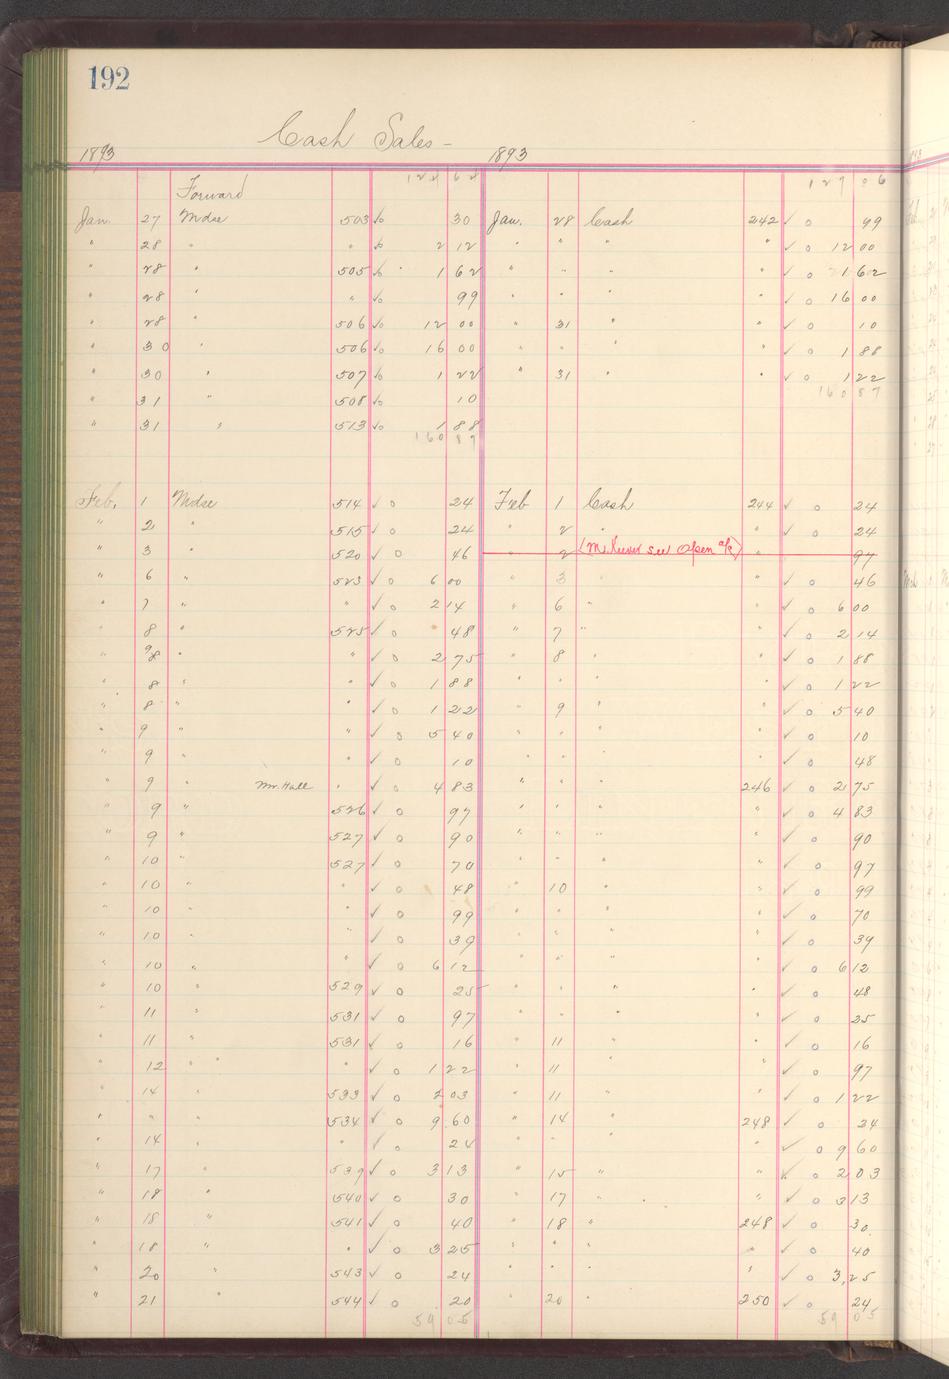 192
Cash Sales -
1893 1893
124 64 127 06
Forward
Jan. 27 Mdse 503 ✓o 30 Jan. 28 Cash 242 ✓ o 99
" 28 " " ✓o 2 12 " " " " ✓ o 12 00
" 28 " 505 ✓o 1 62 " " " " ✓ o 1 62
" 28 " " ✓o 99 " " " " ✓ o 16 00
" 28 " 506 ✓o 12 00 " 31 " " ✓ o 10
" 30 " 506 ✓o 16 00 " " " " ✓ o 1 88
" 30 " 507 ✓o 1 22 " 31 " " ✓ o 1 22
" 31 " 508 ✓o 10 160 87
" 31 " 513 ✓o 1 88
160 87
Feb. 1 Mdse 514 ✓ o 24 Feb 1 Cash 244 ✓ o 24
" 2 " 515 ✓ o 24 " 2 " " ✓ o 24
" 3 " 520 ✓ o 46 " 2 see Open a/c) " 97
" 6 " 523 ✓ o 6 00 " 3 " " ✓ o 46
" 7 " " ✓ o 2 14 " 6 " " ✓ o 6 00
" 8 " 525 ✓ o 48 " 7 " " ✓ o 2 14
" 8 " " ✓ o 2 75 " 8 " " ✓ o 1 88
" 8 " " ✓ o 1 88 " " " " ✓ o 1 22
" 8 " " ✓ o 1 22 " 9 " " ✓ o 5 40
" 9 " " ✓ o 5 40 " " " " ✓ o 10
" 9 " " ✓ o 10 " " " " ✓ o 48
" 9 " Mr. Hall " ✓ o 4 83 " " " 246 ✓ o 2 75
" 9 " 526 ✓ o 97 " " " " ✓ o 4 83
" 9 " 527 ✓ o 90 " " " " ✓ o 90
" 10 " 527 ✓ o 70 " " " " ✓ o 97
" 10 " " ✓ o 48 " 10 " " ✓ o 99
" 10 " " ✓ o 99 " " " " ✓ o 70
" 10 " " ✓ o 39 " " " " ✓ o 39
" 10 " " ✓ o 6 12 " " " " ✓ o 6 12
" 10 " 529 ✓ o 25 " " " " ✓ o 48
" 11 " 531 ✓ o 97 " " " " ✓ o 25
" 11 " 531 ✓ o 16 " 11 " " ✓ o 16
" 12 " " " ✓ o 1 22 " 11 " ✓ o 97
" 14 " 533 ✓ o 2 03 " 11 " " ✓ o 1 22
" " " 534 ✓ o 9 60 " 14 " 248 ✓ o 24
" 14 " " ✓ o 24 " " " " ✓ o 9 60
" 17 " 539 ✓ o 3 13 " 15 " " ✓ o 2 03
" 18 " 540 ✓ o 30 " 17 " " ✓ o 3 13
" 18 " 541 ✓ o 40 " 18 " 248 ✓ o 30
" 18 " " ✓ o 3 25 " " " " ✓ o 40
" 20 " 543 ✓ o 24 " " " " ✓ o 3,25
" 21 " 544 ✓ o 20 " 20 " 250 ✓ o 24
59 05 59 05